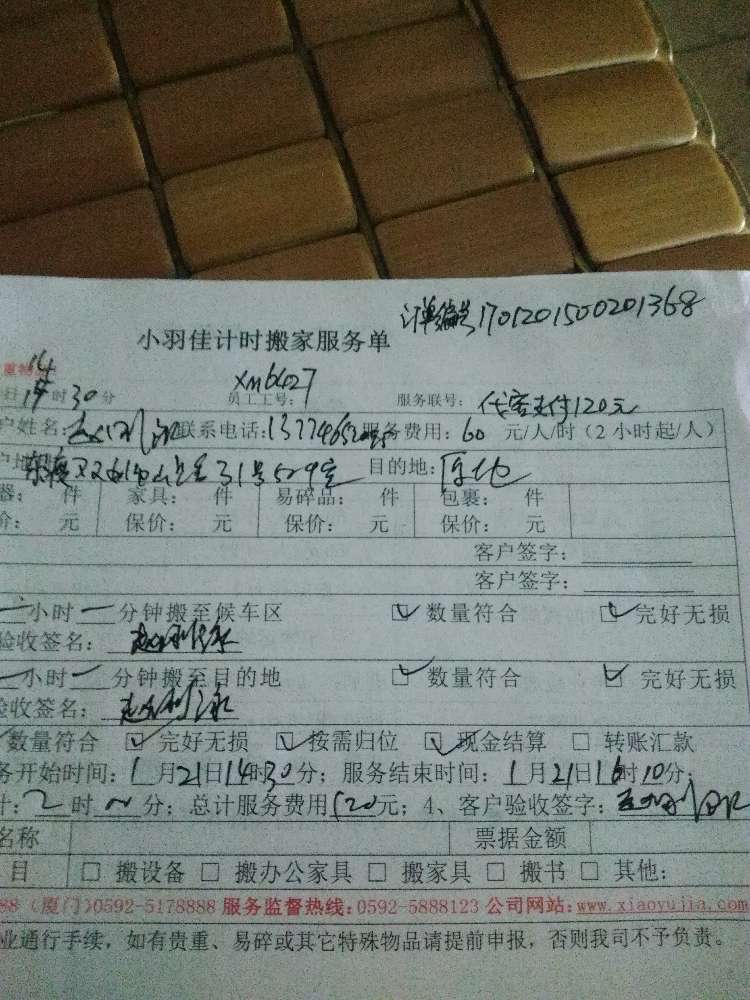 订单编号170120150201368
小羽佳计时搬家服务单
重物品:
14时30分 员工工号: xm6427 服务联号: 代客支付120元
户姓名: 联系电话: 服务费用: 60 元/人/时（2小时起/人）
31号529室 目的地: 原地
器: 件 家具: 件 易碎品: 件 包裹: 件
价: 元 保价: 元 保价: 元 保价: 元
客户签字:
客户签字:
一小时一分钟搬至候车区 ☑ 数量符合 ☑ 完好无损
验收签名:
一小时一分钟搬至目的地 ☑ 数量符合 ☑ 完好无损
验收签名:
数量符合 ☑ 完好无损 ☑ 按需归位 ☑ 现金结算 □ 转账汇款
务开始时间: 1月21日14时30分; 服务结束时间: 1月21日16时10分;
计: 2时~分; 总计服务费用120元; 4、客户验收签字:
名称 票据金额
目 □ 搬设备 □ 搬办公家具 □ 搬家具 □ 搬书 □ 其他:
88（厦门）0592-5178888 服务监督热线:0592-5888123 公司网站:www.xiaoyujia.com
业通行手续，如有贵重、易碎或其它特殊物品请提前申报，否则我司不予负责。